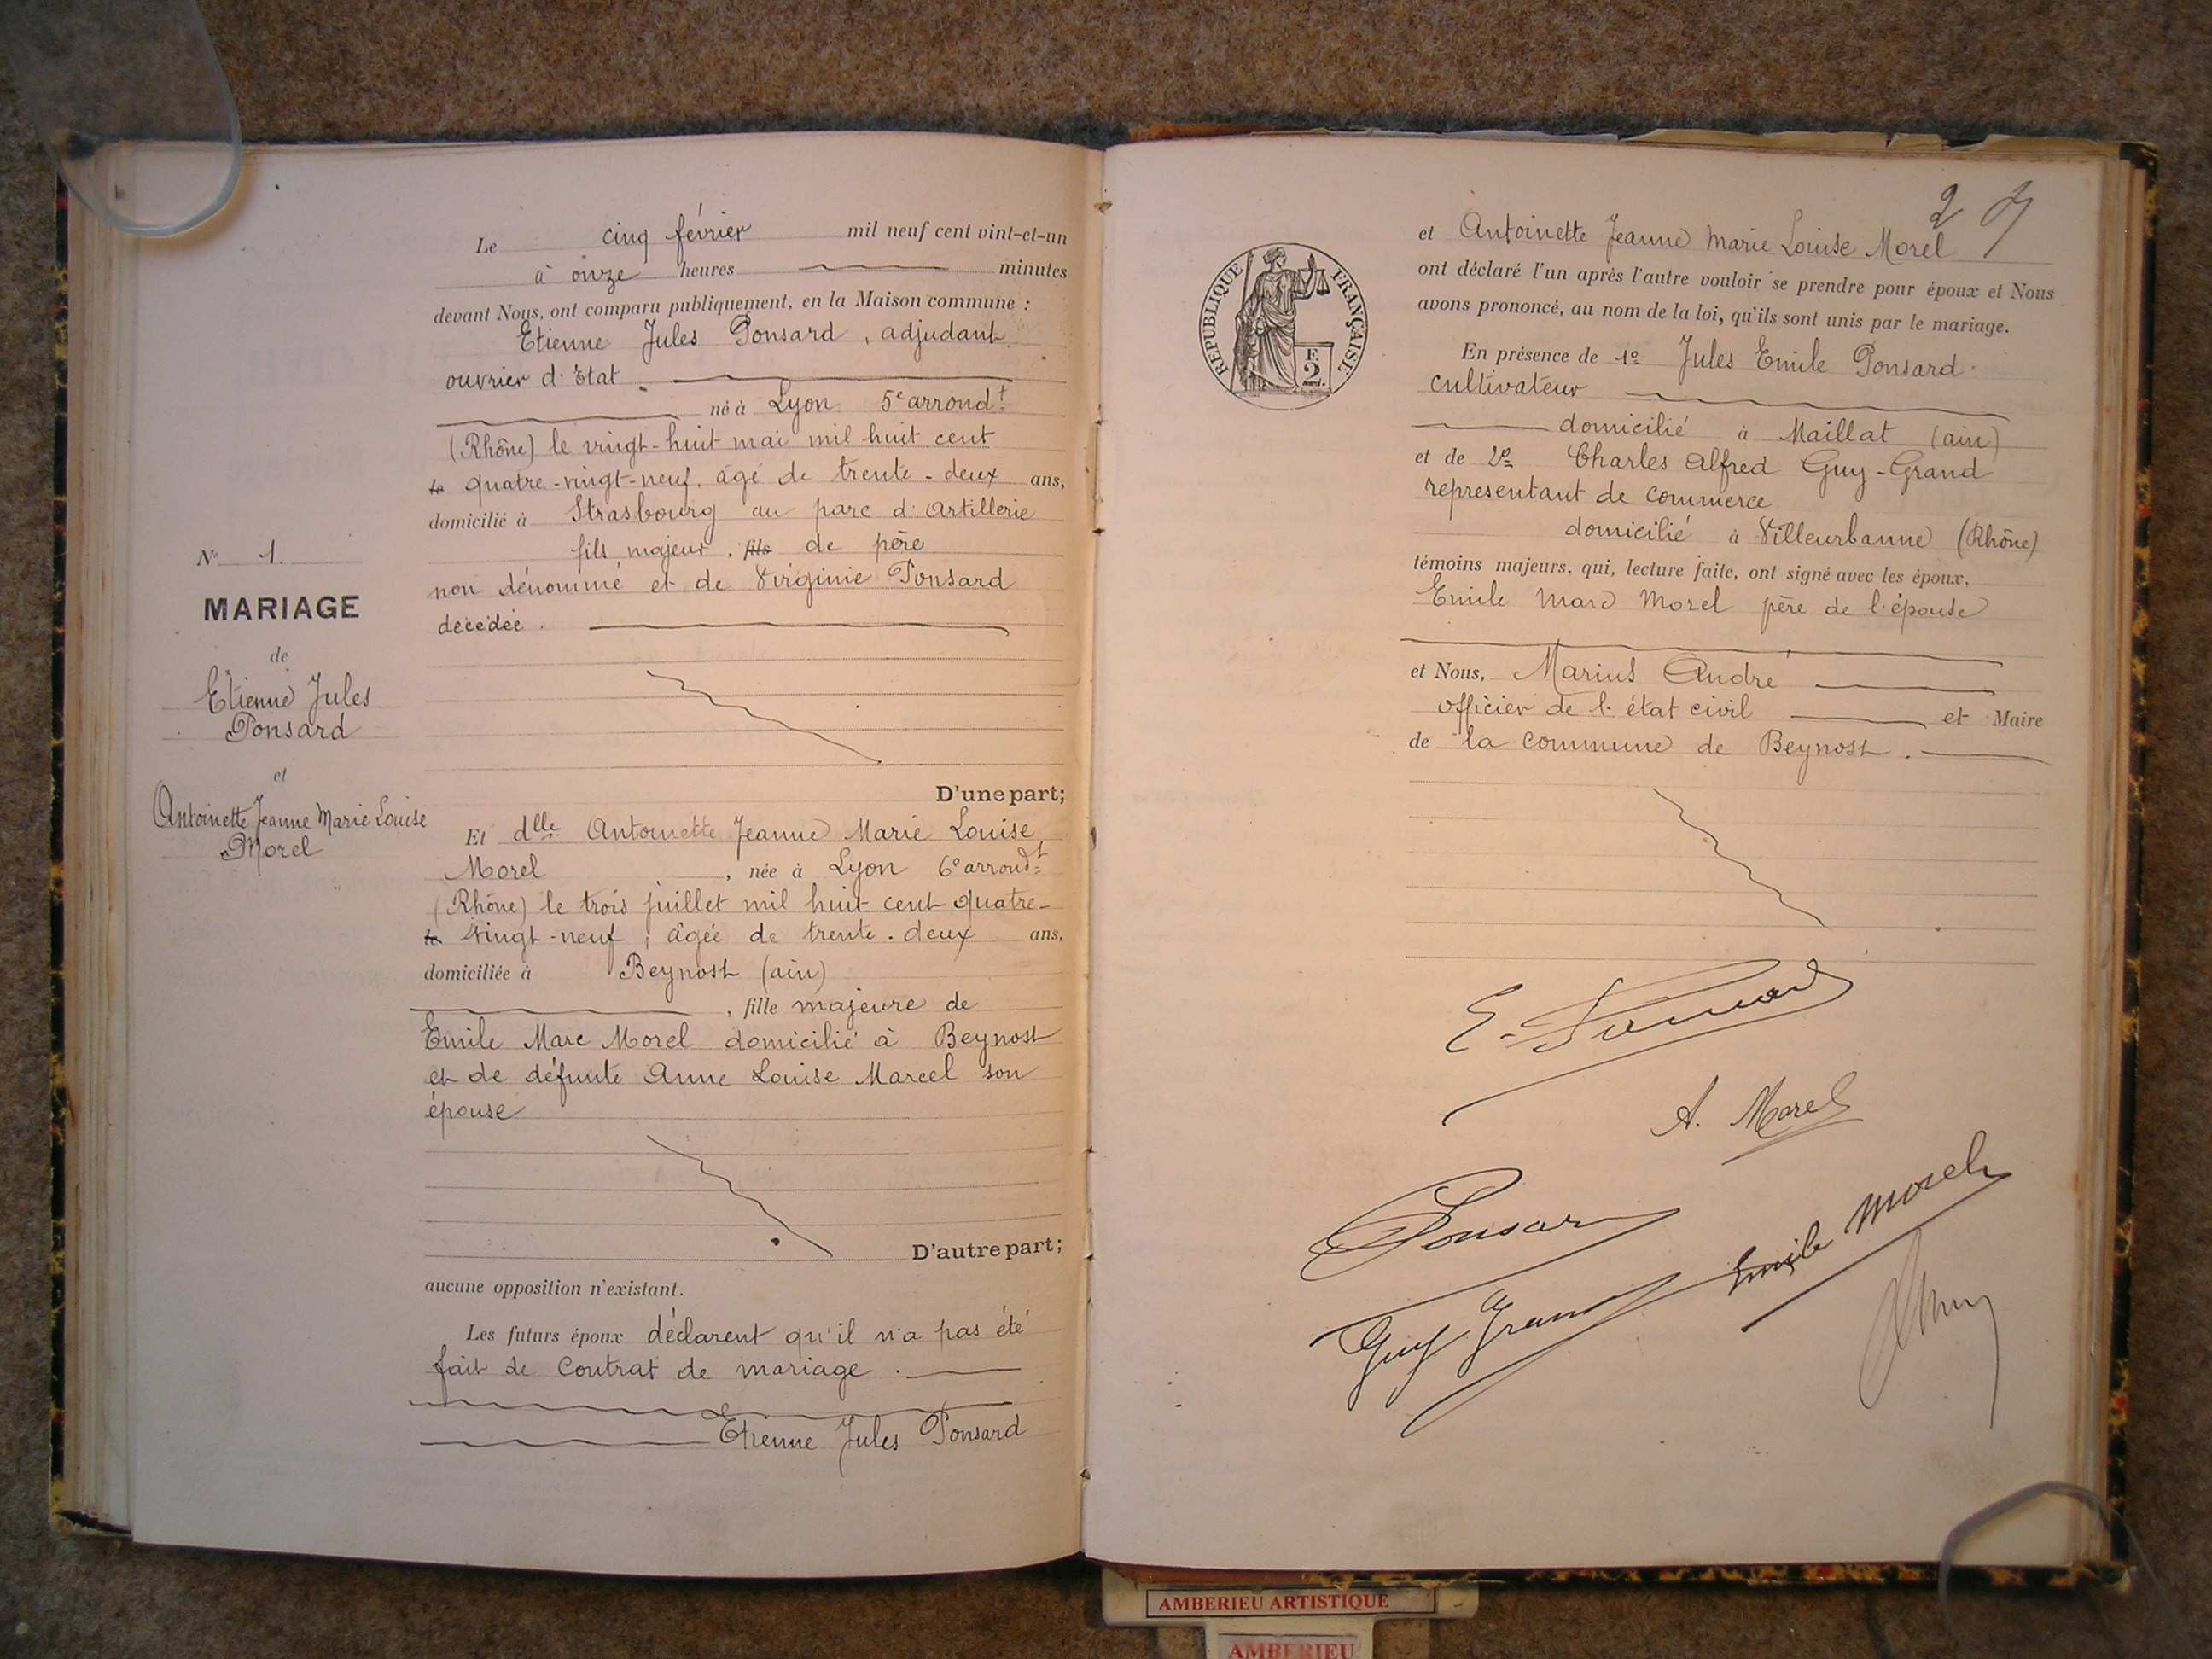 N° 1.
MARIAGE
de
Etienne Jules
Ponsard
et
Antoinette Jeanne Marie Louise
Morel
Le cinq février mil neuf cent vint-et-un
à onze heures minutes
devant Nous, ont comparu publiquement, en la Maison commune :
Etienne Jules Ponsard, adjudant
ouvrier d'Etat
né à Lyon 5e arrondt
(Rhône) le vingt-huit mai mil huit cent
le quatre-vingt-neuf, âgé de trente-deux ans,
domicilié à Strasbourg au parc d'Artillerie
fils majeur, fils de père
non dénommé et de Virginie Ponsard
décédée.
D'une part;
Et dlle Antoinette Jeanne Marie Louise
Morel, née à Lyon 6e arrondt
(Rhône) le trois juillet mil huit cent quatre-
le vingt-neuf, âgée de trente-deux ans,
domiciliée à Beynost (ain)
, fille majeure de
Emile Marc Morel domicilié à Beynost
et de défunte Anne Louise Marcel son
épouse
D'autre part;
aucune opposition n'existant.
Les futurs époux déclarent qu'il n'a pas été
fait de contrat de mariage.
Etienne Jules Ponsard
2
RÉPUBLIQUE FRANÇAISE
E
2
et Antoinette Jeanne Marie Louise Morel
ont déclaré l'un après l'autre vouloir se prendre pour époux et Nous
avons prononcé, au nom de la loi, qu'ils sont unis par le mariage.
En présence de 1° Jules Emile Ponsard
cultivateur
domicilié à Maillat (ain)
et de 2° Charles Alfred Guy-Grand
représentant de commerce
domicilié à Villeurbanne (Rhône)
témoins majeurs, qui, lecture faite, ont signé avec les époux,
Emile Marc Morel père de l'épouse
et Nous, Marius André
officier de l'état civil et Maire
de la commune de Beynost.
E. Ponsard
A. Morel
Ponsard
Emile Morel
Guy Grand
AMBERIEU ARTISTIQUE
AMBERIEU